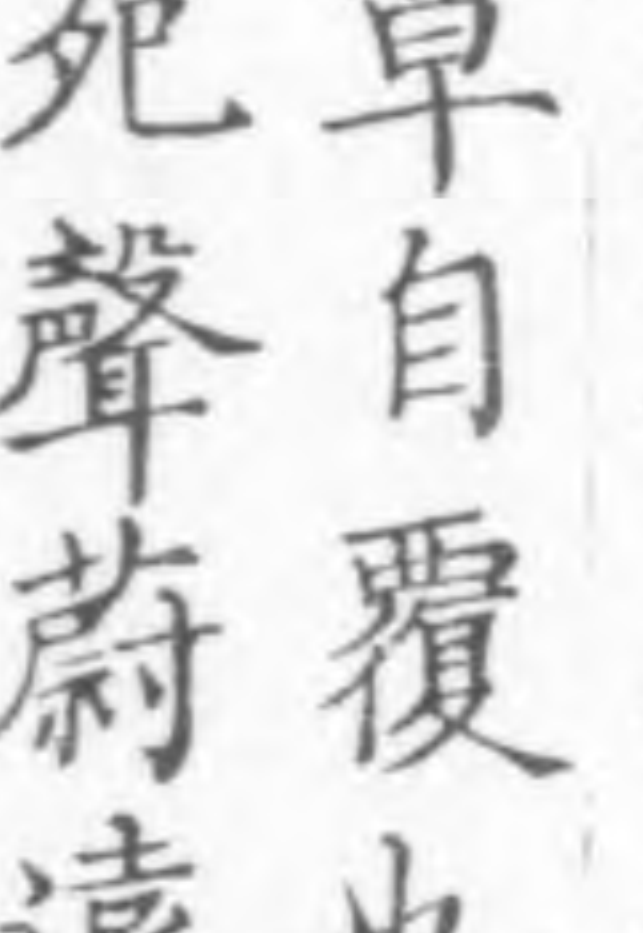 草自覆也
夗聲蔚遠